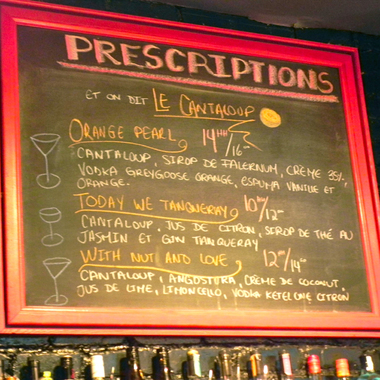 PRESCRIPTIONS
ET ON DIT LE CANTALOUP
ORANGE PEARL 14
16
CANTALOUP, SIROP DE FALERNUM, CRÈME 35%,
VODKA GREYGOOSE ORANGE, ESPUMA VANILLE ET
ORANGE.
TODAY WE TANQUERAY 10/12
CANTALOUP, JUS DE CITRON, SIROP DE THÉ AU
JASMIN ET GIN TANQUERAY
WITH NUT AND LOVE 12/14
CANTALOUP, ANGOSTURA, CRÈME DE COCONUT,
JUS DE LIME, LIMONCELLO, VODKA KETEL ONE CITRON